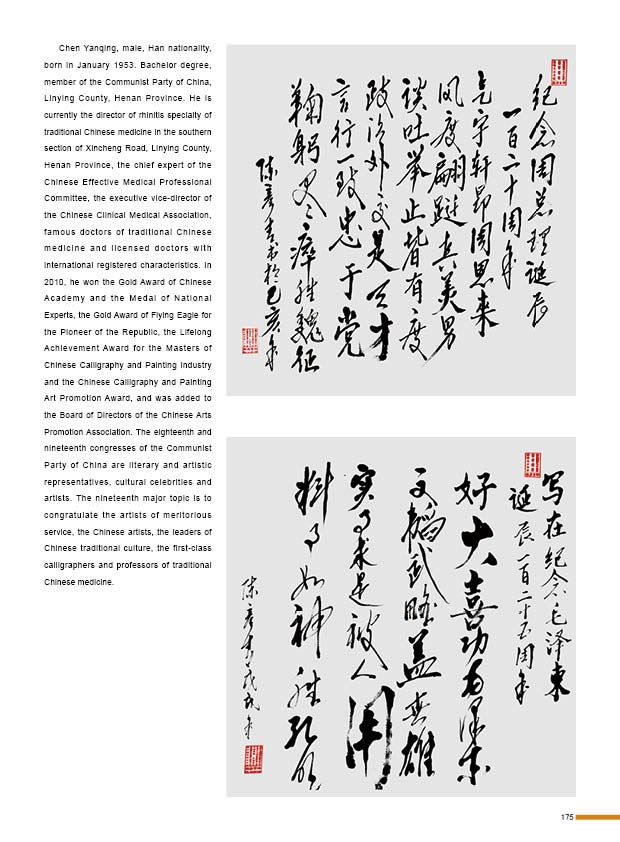 Chen Yanqing, male, Han nationality,
born in January 1953. Bachelor degree,
member of the Communist Party of China,
Linying County, Henan Province. He is
currently the director of rhinitis specialty of
traditional Chinese medicine in the southern
section of Xincheng Road, Linying County,
Henan Province, the chief expert of the
Chinese Effective Medical Professional
Committee, the executive vice-director of
the Chinese Clinical Medical Association,
famous doctors of traditional Chinese
medicine and licensed doctors with
international registered characteristics. In
2010, he won the Gold Award of Chinese
Academy and the Medal of National
Experts, the Gold Award of Flying Eagle for
the Pioneer of the Republic, the Lifelong
Achievement Award for the Masters of
Chinese Calligraphy and Painting Industry
and the Chinese Calligraphy and Painting
Art Promotion Award, and was added to
the Board of Directors of the Chinese Arts
Promotion Association. The eighteenth and
nineteenth congresses of the Communist
Party of China are literary and artistic
representatives, cultural celebrities and
artists. The nineteenth major topic is to
congratulate the artists of meritorious
service, the Chinese artists, the leaders of
Chinese traditional culture, the first-class
calligraphers and professors of traditional
Chinese medicine.
纪念周总理诞辰
一百二十周年
气宇轩昂周恩来
风度翩跹真美男
谈吐举止皆有度
政治外交是天才
言行一致忠于党
鞠躬尽瘁胜魏征
陈彦青书於己亥年
写在纪念毛泽东
诞辰一百二十五周年
好大喜功
文韬武略盖英雄
实事求是被人
料事如神胜孔明
陈彦青戊戌年
175